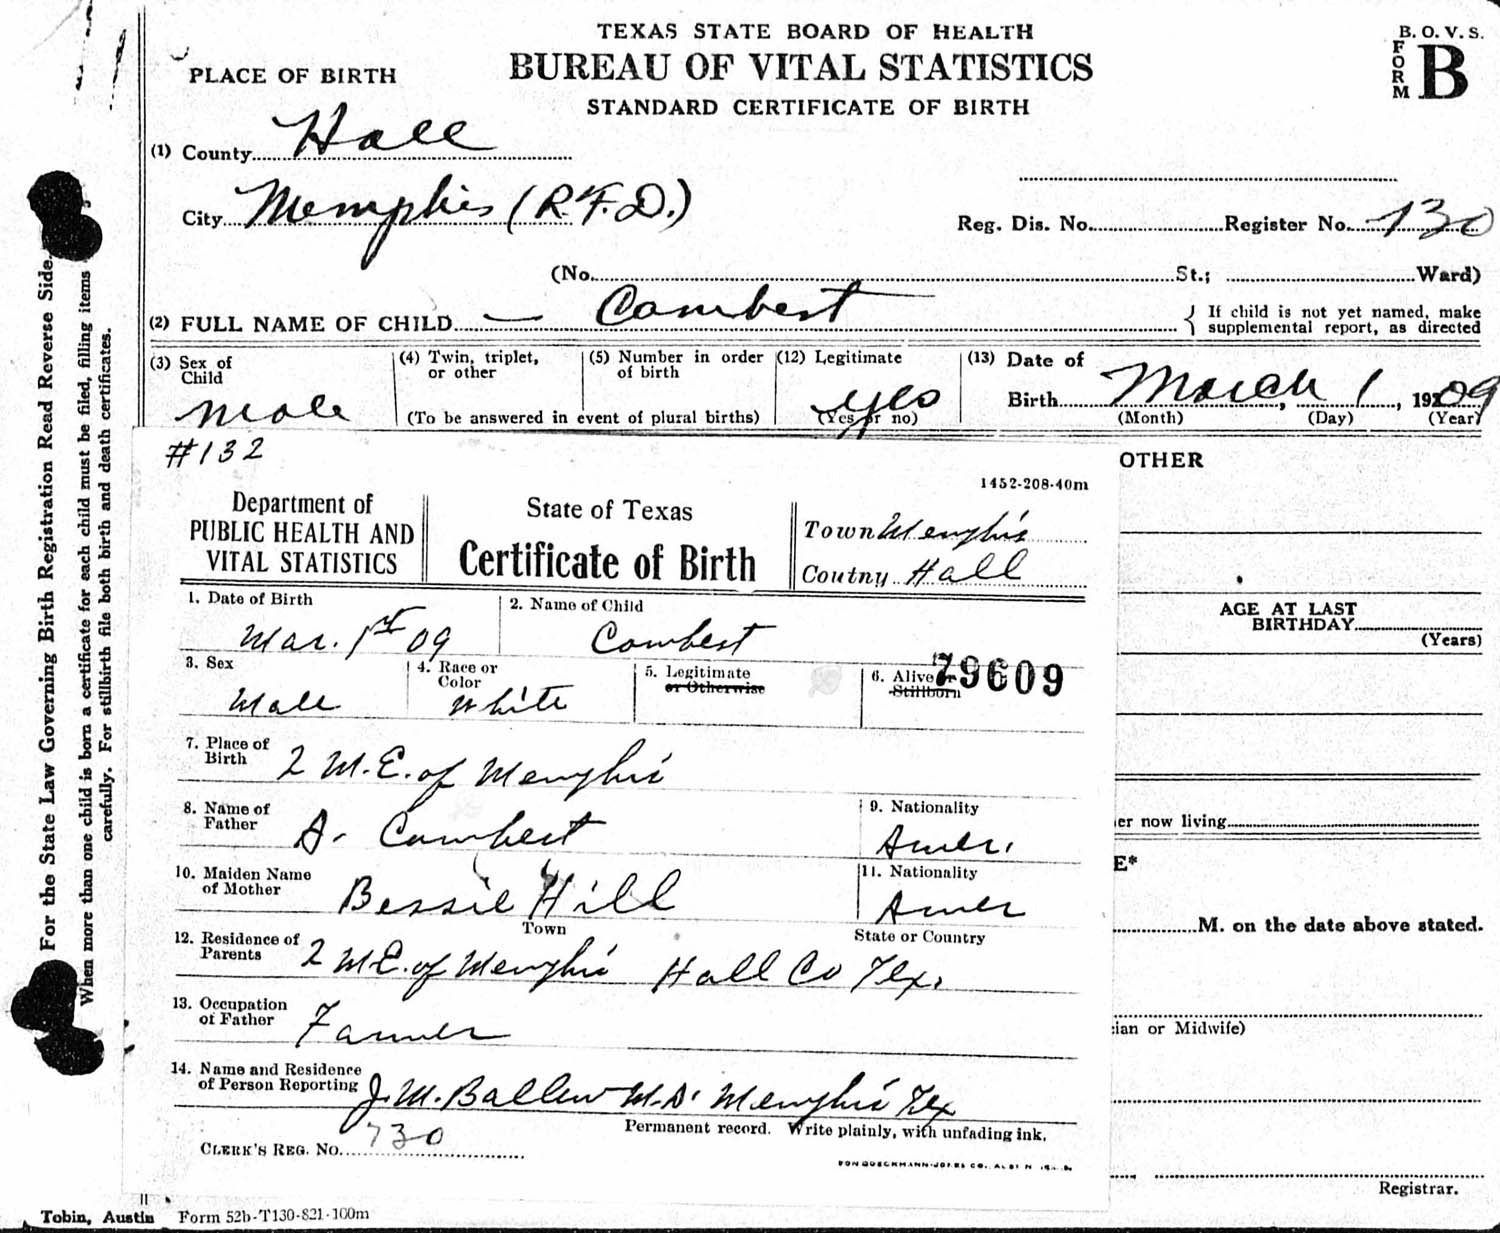 TEXAS STATE BOARD OF HEALTH
BUREAU OF VITAL STATISTICS
STANDARD CERTIFICATE OF BIRTH
B. O. V. S.
FORM B
PLACE OF BIRTH
(1) County Hall
City Memphis (R.F.D.)
Reg. Dis. No. Register No. 730
(No. St.; Ward)
(2) FULL NAME OF CHILD — Combest
{ If child is not yet named, make
supplemental report, as directed
(3) Sex of
Child
Male
(4) Twin, triplet,
or other
(5) Number in order
of birth
(To be answered in event of plural births)
(12) Legitimate
yes
(Yes or no)
(13) Date of
Birth March 1, 1909
(Month) (Day) (Year)
For the State Law Governing Birth Registration Read Reverse Side.
When more than one child is born a certificate for each child must be filed, filling items
carefully. For stillbirth file both birth and death certificates.
#132
1452-208-40m
Department of
PUBLIC HEALTH AND
VITAL STATISTICS
State of Texas
Certificate of Birth
Town Memphis
Coutny Hall
1. Date of Birth
Mar. 1st 09
2. Name of Child
Combest
3. Sex
Male
4. Race or
Color
White
5. Legitimate
or Otherwise
6. Alive or
Stillborn
79609
7. Place of
Birth 2 M.E. of Memphis
8. Name of
Father A. Combest
9. Nationality
Amer.
10. Maiden Name
of Mother Bessie Hill
11. Nationality
Amer
Town
State or Country
12. Residence of
Parents 2 M.E. of Memphis Hall Co Tex.
13. Occupation
of Father Farmer
14. Name and Residence
of Person Reporting J.M. Ballew M.D. Memphis Tex
Permanent record. Write plainly, with unfading ink.
CLERK'S REG. NO. 730
OTHER
AGE AT LAST
BIRTHDAY
(Years)
er now living
E*
M. on the date above stated.
cian or Midwife)
Registrar.
Tobin, Austin Form 52b-T130-821-100m